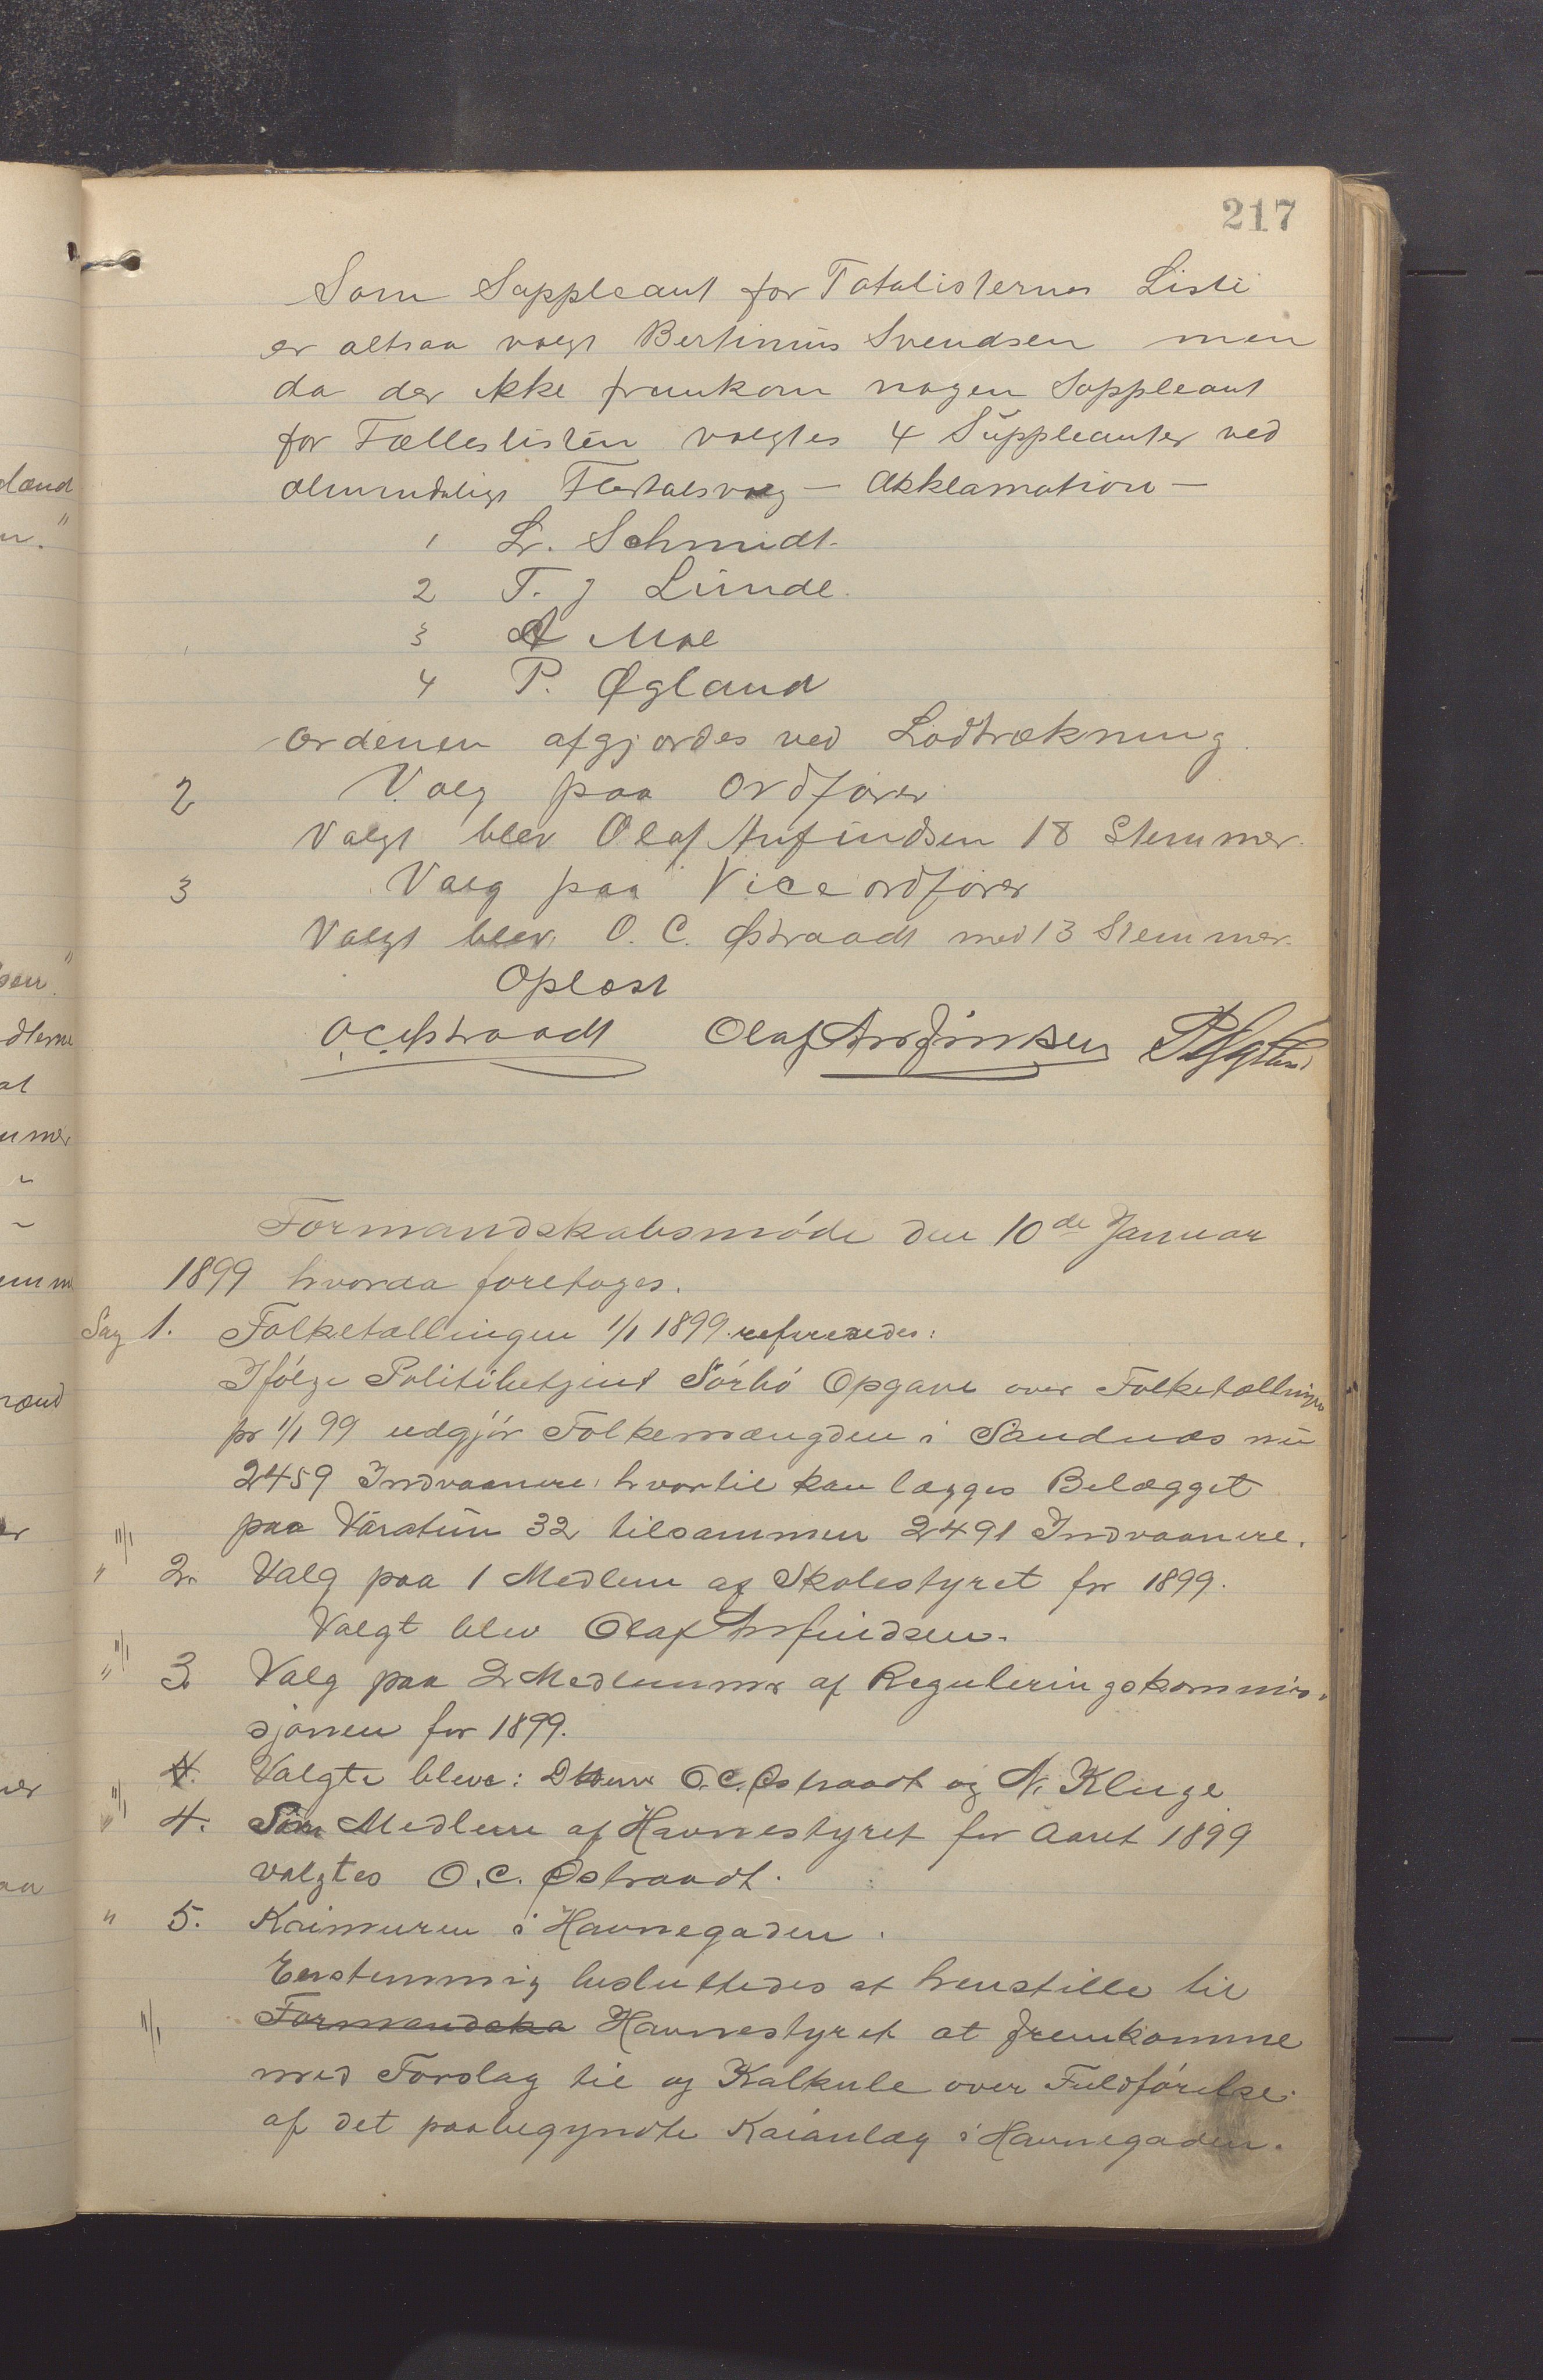 217
Som Suppleant for Totalisternes Liste
er altsaa valgt Bertinius Svendsen men
da der ikke fremkom nogen Suppleant
for Fælleslisten valgtes 4 Suppleanter ved
almindeligt Flertalsvalg — Akklamation —
1 Lr. Schmidt.
2 T. J Lunde.
3 A Moe
4 P. Øgland
Ordenen afgjordes ved Lodtrækning.
2 Valg paa Ordfører
Valgt blev Olaf Anfindsen 18 Stemmer.
3 Valg paa Viceordfører
Valgt blev O. C. Østraadt med 13 Stemmer.
Oplæst
O.C. Østraadt Olaf Anfindsen P Øgland
Formandskabsmöde den 10de Januar
1899 hvorda foretoges.
Sag 1. Folketællingen 1/1 1899 refereredes:
Ifölge Politibetjent Sörbö Opgave over Folketællingen
pr 1/1 99 udgjör Folkemængden i Sandnæs nu
2459 Indvaanere, hvortil kan lægges Belægget
paa Varatun 32 tilsammen 2491 Indvaanere.
" 2. Valg paa 1 Medlem af Skolestyret for 1899.
Valgt blev Olaf Anfindsen.
" 3. Valg paa 2 Medlemmer af Reguleringskommis-
sjonen for 1899.
4. Valgte bleve: D'Herrer O.C. Østraadt og N. Kluge
" 4. Som Medlem af Havnestyret for Aaret 1899
valgtes O. C. Østraadt.
" 5. Kaimuren i Havnegaden.
Enstemmig besluttedes at henstille til
Formandska Havnestyret at fremkomme
med Forslag til og Kalkule over Fuldförelse
af det paabegyndte Kaianlæg i Havnegaden.